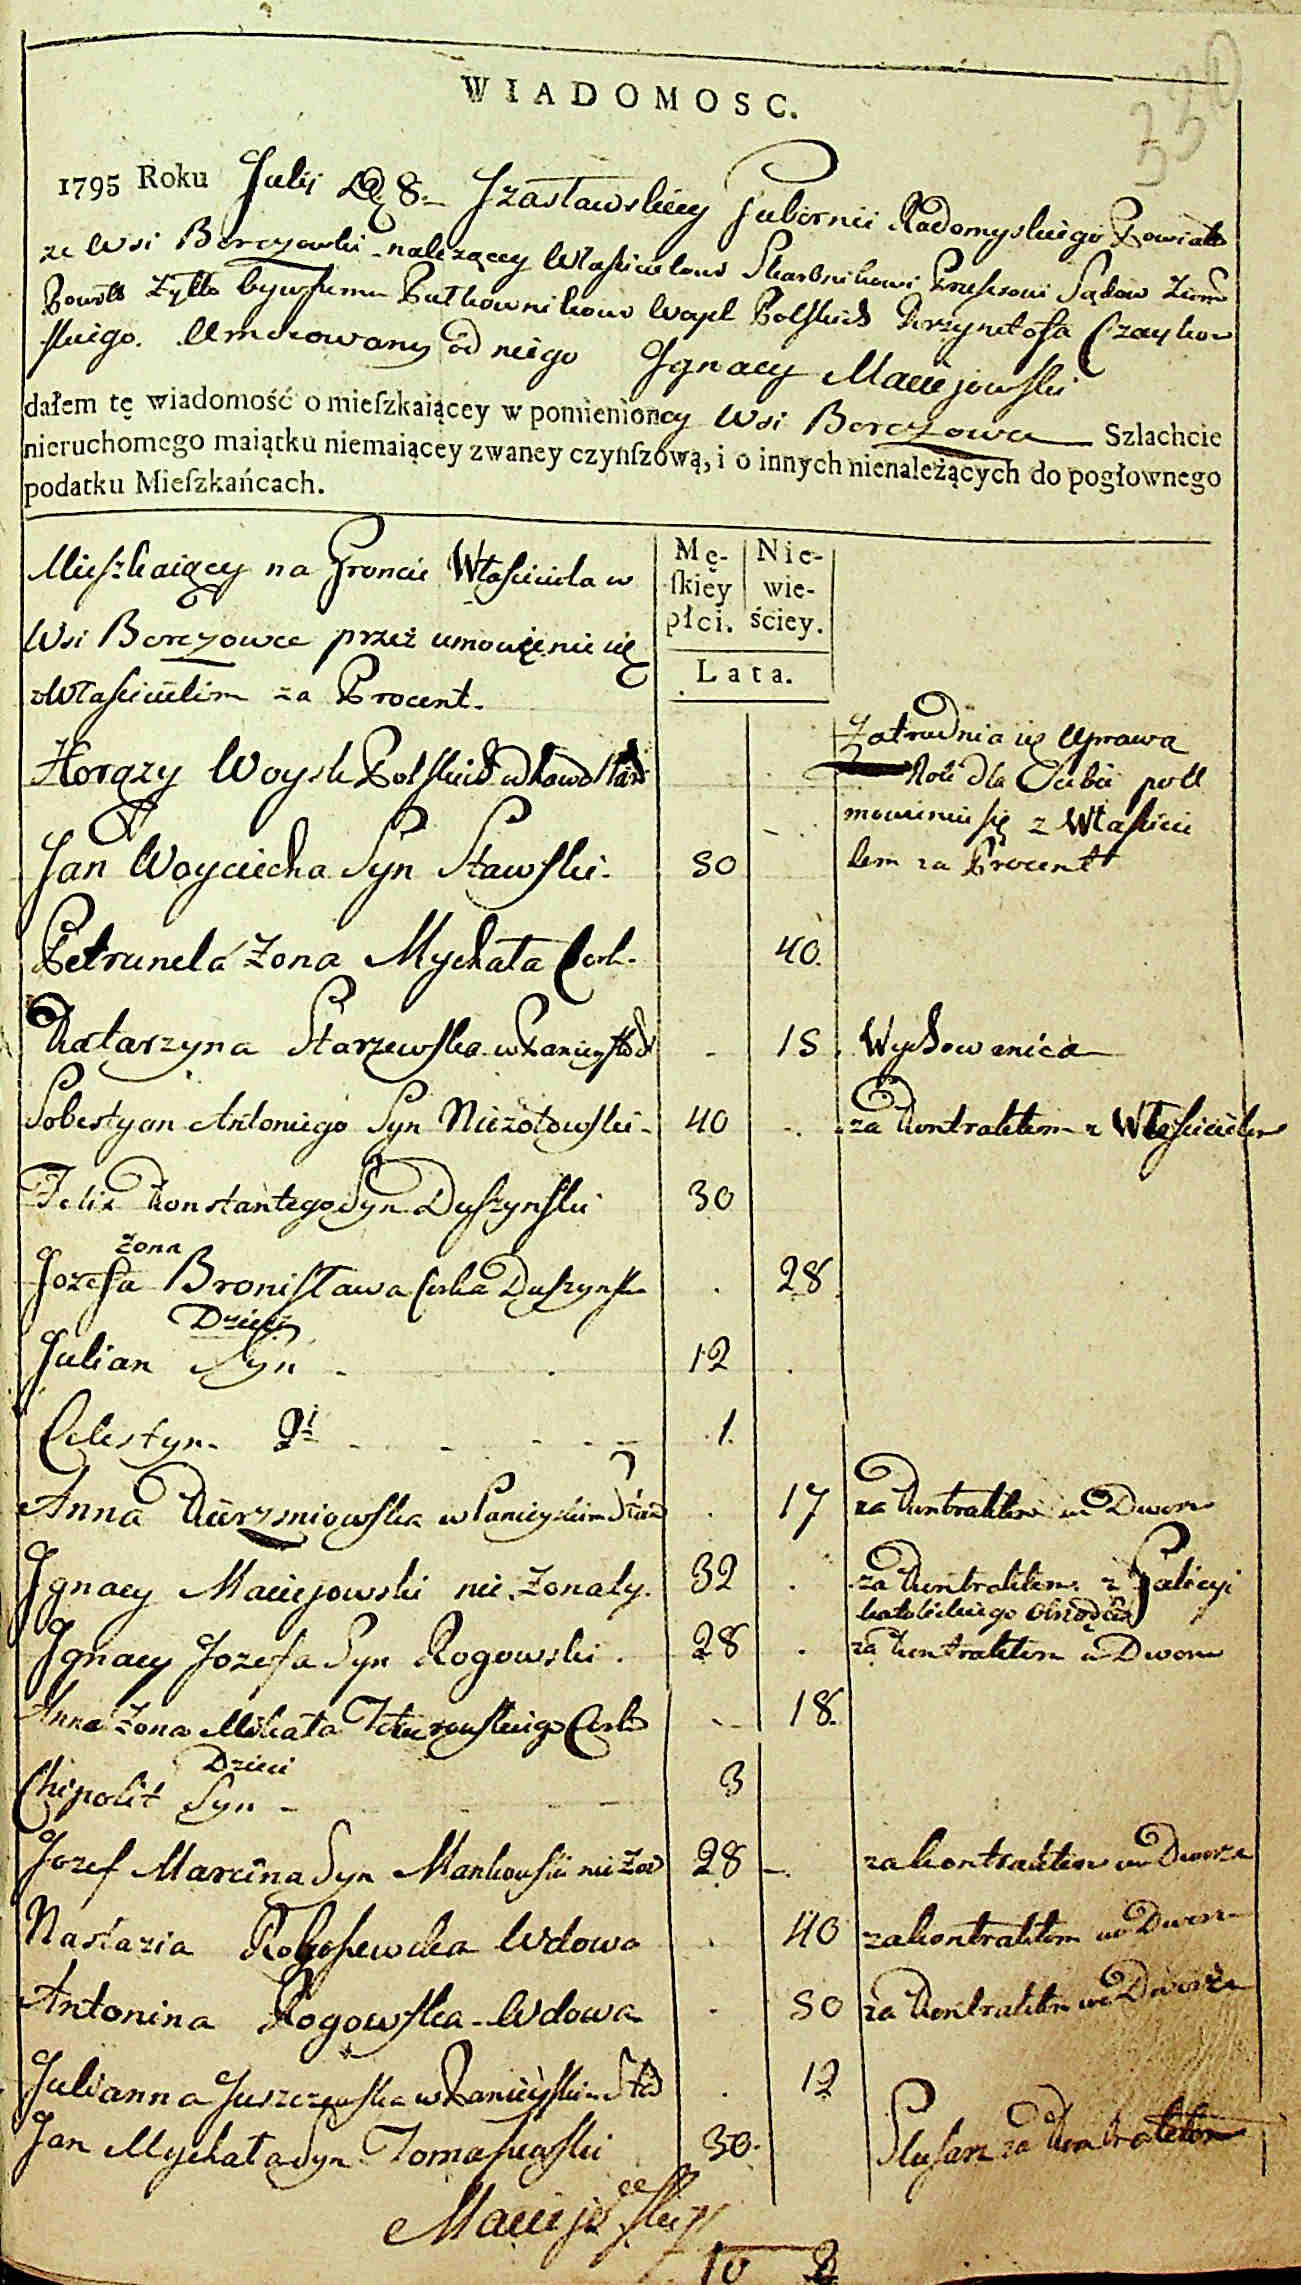 330
WIADOMOSC.
1795 Roku Julij 28 Izasławskiey Gubernii Radomyskiego Powiatu
ze Wsi Berezowki należącey Właścicielowi Skarbnikowi Prezesowi Sądow Ziem
Powtu Żytto bywszemu Pułkownikowi Woysk Polskich Czaykow
skiego. Umocowany od niego Jgnacy Maciejowski
dałem tę wiadomość o mieſzkaiącey w pomienioney Wsi Berezowce Szlachcie
nieruchomego maiątku niemaiącey zwaney czynſzową, i o innych nienależących do pogłownego
podatku Mieſzkańcach.
Mieszkaiący na Groncie Właściciela w
Wsi Berezowce przez umowienie się
z Właścicielem za Procent.
Mę- Nie-
ſkiey wie-
płci. ściey.
Lata.
Horązy Woysk Polskich
Zatrudnia się Uprawą
Roli dla Siebie po U
mowieniu się z Właścicie
lem za Procent
Jan Woyciecha Syn Stawski. 50
Petrunela Zona Mychała Cork. 40.
Katarzyna Starzewska w Panieńs: 15 Wychowanica
Sobestyan Antoniego Syn Niezotowski 40 za kontraktem z Właścicielem
Felix Konstantego Syn Duszynski 30
Zona
Jozefa Bronisława Corka Duszynska 28
Dzieci
Julian Syn 12
Celestyn 1.
Anna w Panieyskim Stan 17 za kontraktem we Dworze
Jgnacy Maciejowski nie Zonaty. 32 za kontraktem z Galicyi
katolickiego Obrządku
Jgnacy Jozefa Syn Rogowski. 28 za kontraktem w Dworze
Anna Zona Michała Corka 18.
Dzieci
Chipolit Syn 3
Jozef Marcina Syn Mankowski nie Zon 28 za kontraktem we Dworze
Nastazia Wdowa 40 za kontraktem we Dworze
Antonina Rogowska Wdowa 50 za kontraktem we Dworze
Julianna Juszczewska w Panieyskim Sta 12
Jan Mychała Syn Tomaszewski 30. za kontraktem
Maciejowski
10 8